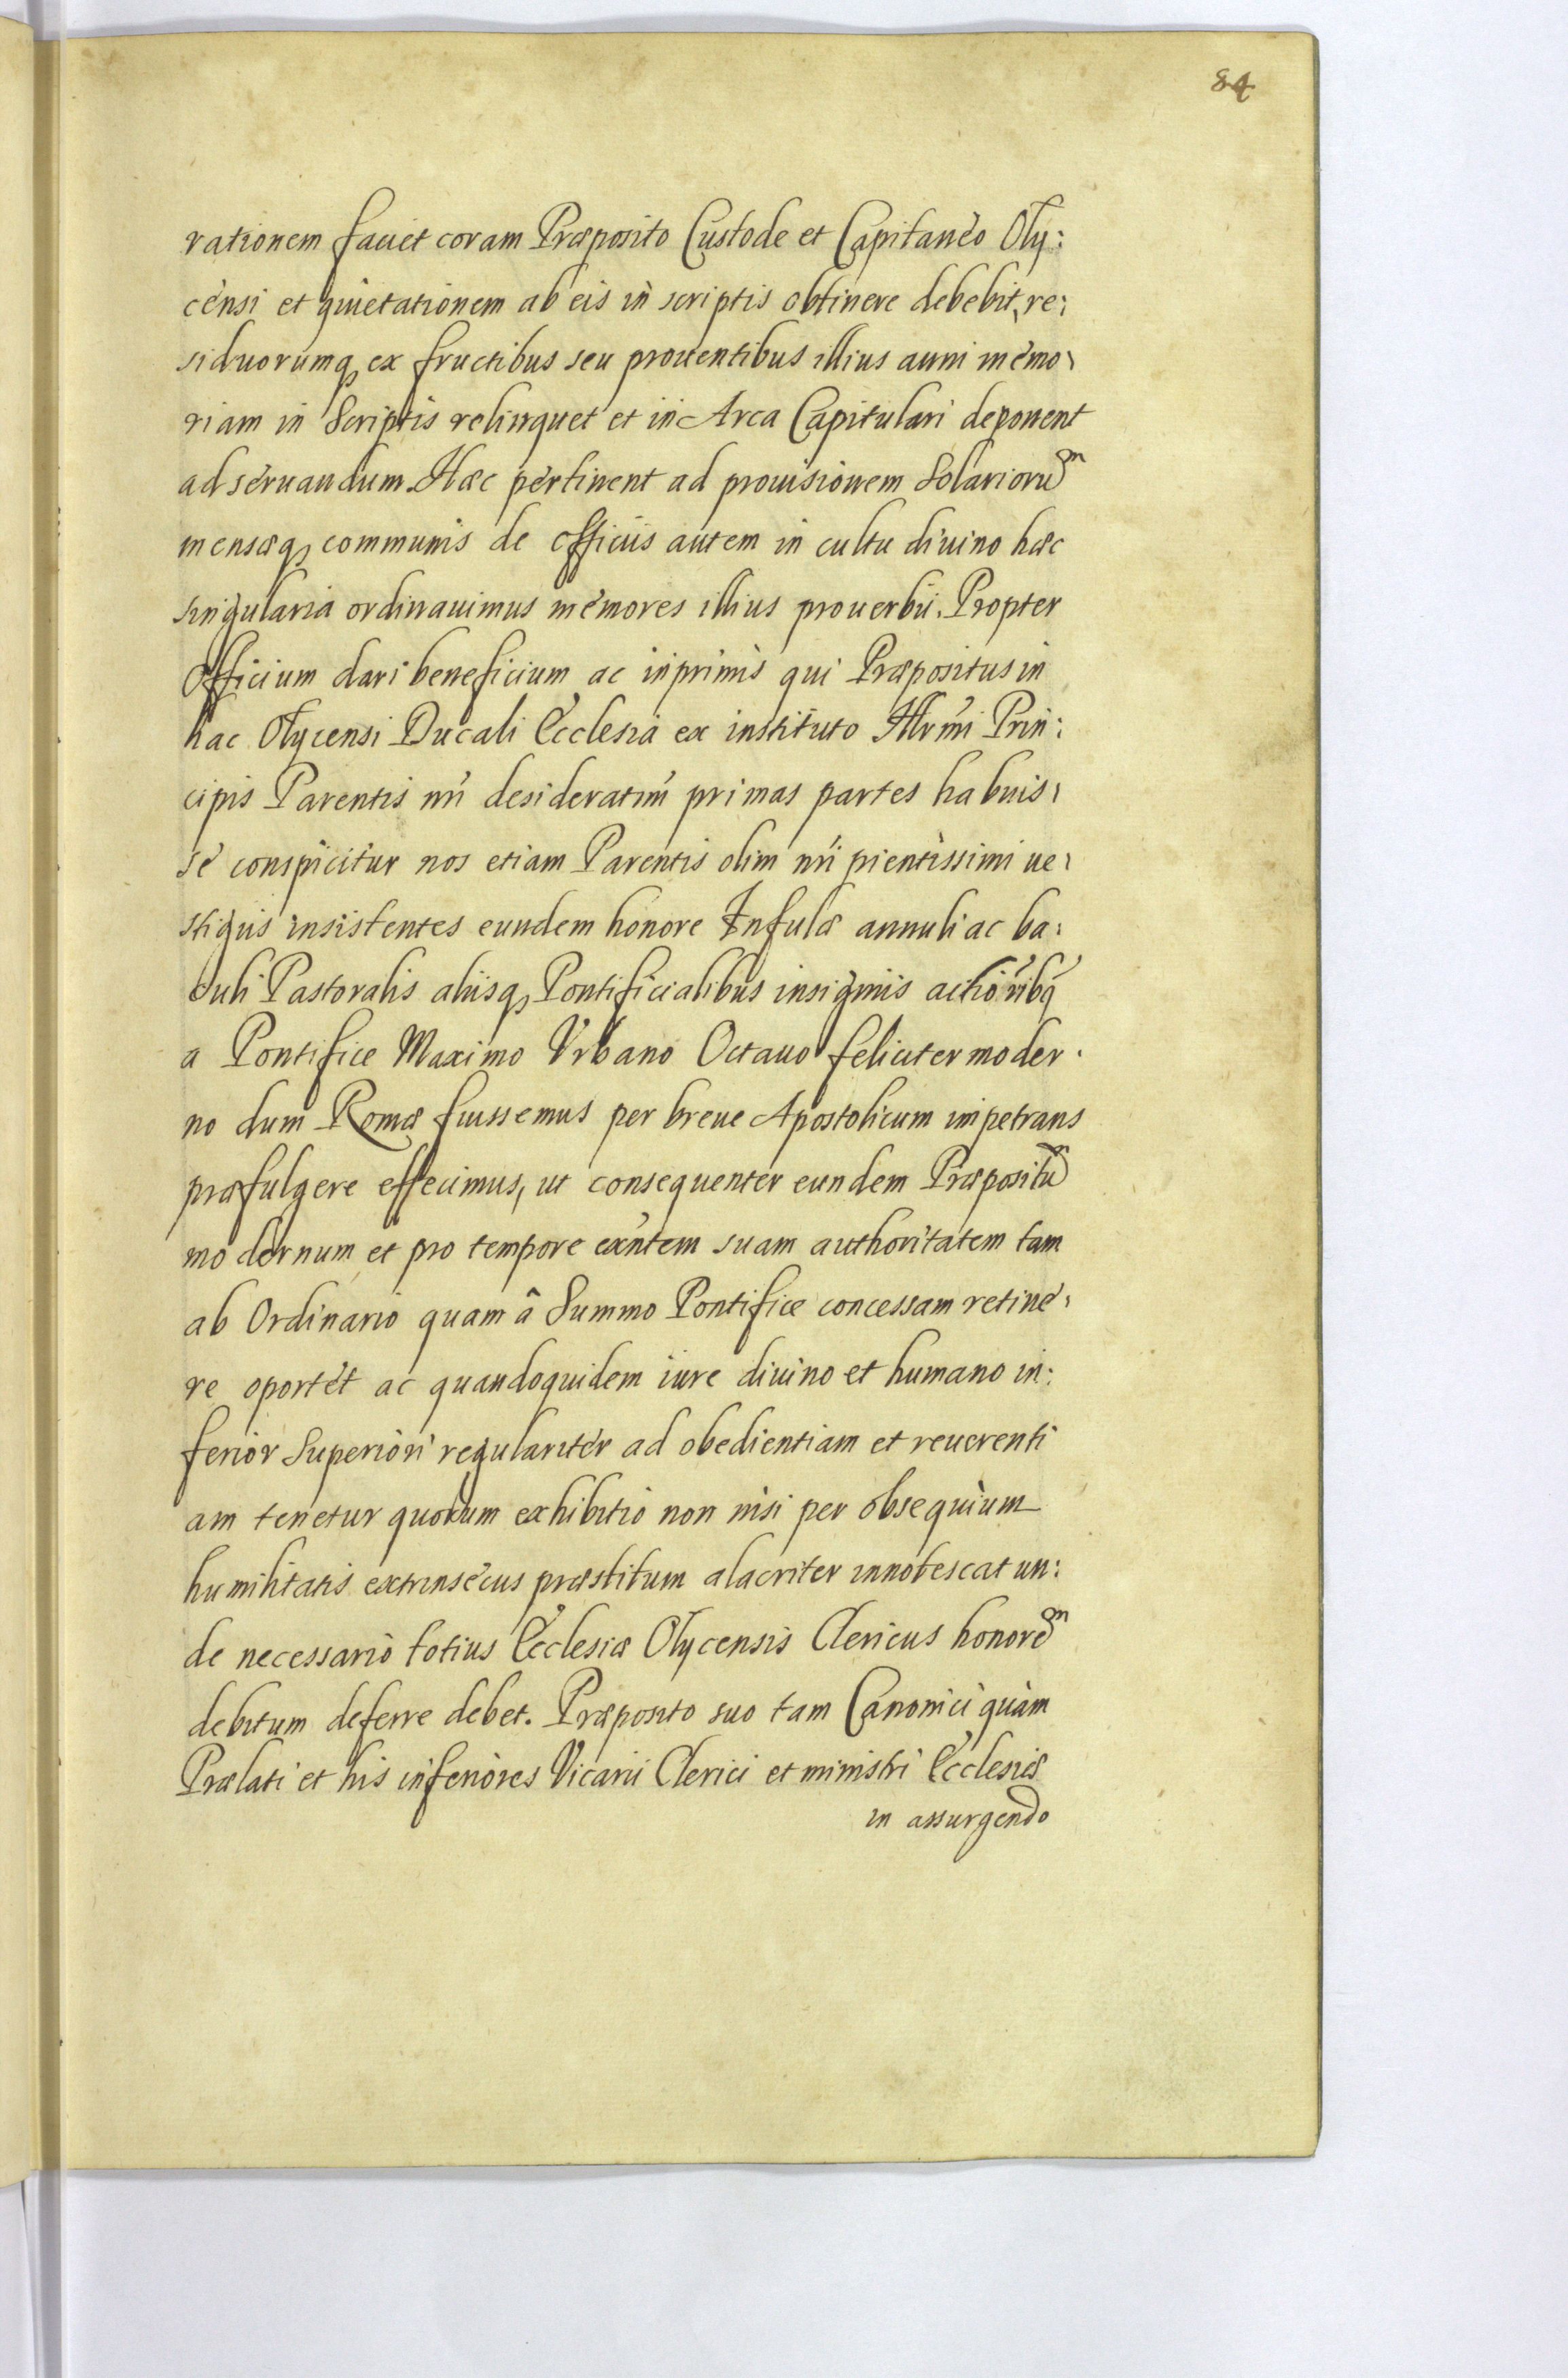 84
rationem faciet coram Præposito Custode et Capitaneo Oly:
censi et quietationem ab eis in scriptis obtinere debebit, re:
siduorumq, ex fructibus seu prouentibus illius anni memo,
riam in Scriptis relinquet et in Arca Capitulari deponent
ad seruandum. Hæc pertinent ad prouisionem Solarioru͂
mensæq, communis de officiis autem in cultu diuino hæc
singularia ordinauimus memores illius prouerbii. Propter
Officium dari beneficium ac inprimis qui Præpositus in
hac Olycensi Ducali Ecclesia ex instituto Illrm̃i Prin:
cipis Parentis nr̃i desideratm̃ primas partes habuis,
se conspicitur nos etiam Parentis olim nr̃i pientissimi ue,
stigiis insistentes eundem honore Infulæ annuli ac ba:
culi Pastoralis aliisq, Pontificialibus insigniis actiõnibq̃
a Pontifice Maximo Vrbano Octauo feliciter moder.
no dum Romæ fuissemus per breue Apostolicum impetrans
præfulgere effecimus, ut consequenter eundem Præpositu͂
modernum et pro tempore exñtem suam authoritatem tam
ab Ordinario quam â Summo Pontifice concessam retine,
re oportet ac quandoquidem iure diuino et humano in:
ferior Superiori regulariter ad obedientiam et reuerenti
am tenetur quorum exhibitio non nisi per obsequium
humilitatis extrinsecus præstitum alacriter innotescat un:
de necessario totius Ecclesiæ Olycensis Clericus honore͂
debitum deferre debet. Præposito suo tam Canonici quàm
Prælati et his inferiores Vicarii Clerici et ministri Ecclesiæ
in assurgendo